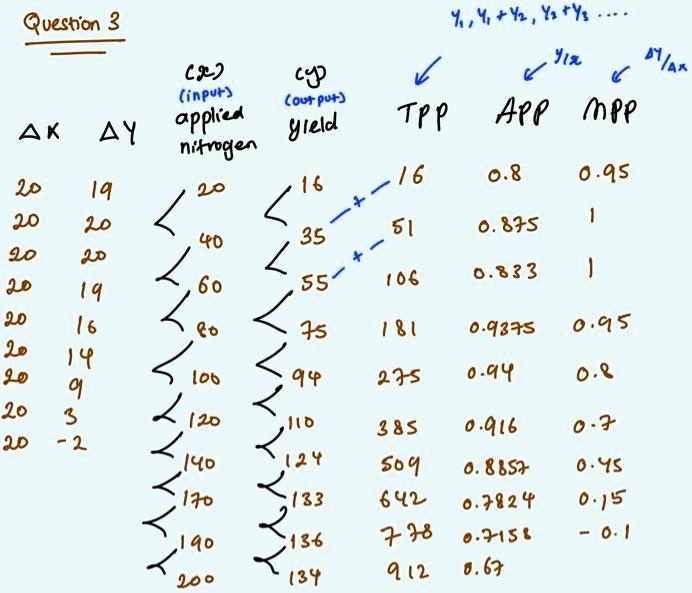 Question 3
Y₁, Y₁ + Y₂, Y₂ + Y₃ ....
(x) (y) Y/x ΔY/Δx
(input) (output)
ΔX ΔY applied nitrogen yield TPP APP MPP
20 19 20 16 16 0.8 0.95
20 20 40 35 + 51 0.875 1
20 20 60 55 + 106 0.833 1
20 19 80 75 181 0.9375 0.95
20 16 100 94 275 0.94 0.8
20 14 120 110 385 0.916 0.7
20 9 140 124 509 0.8857 0.45
20 3 170 133 642 0.7824 0.15
20 -2 190 136 778 0.7158 - 0.1
200 134 912 0.67